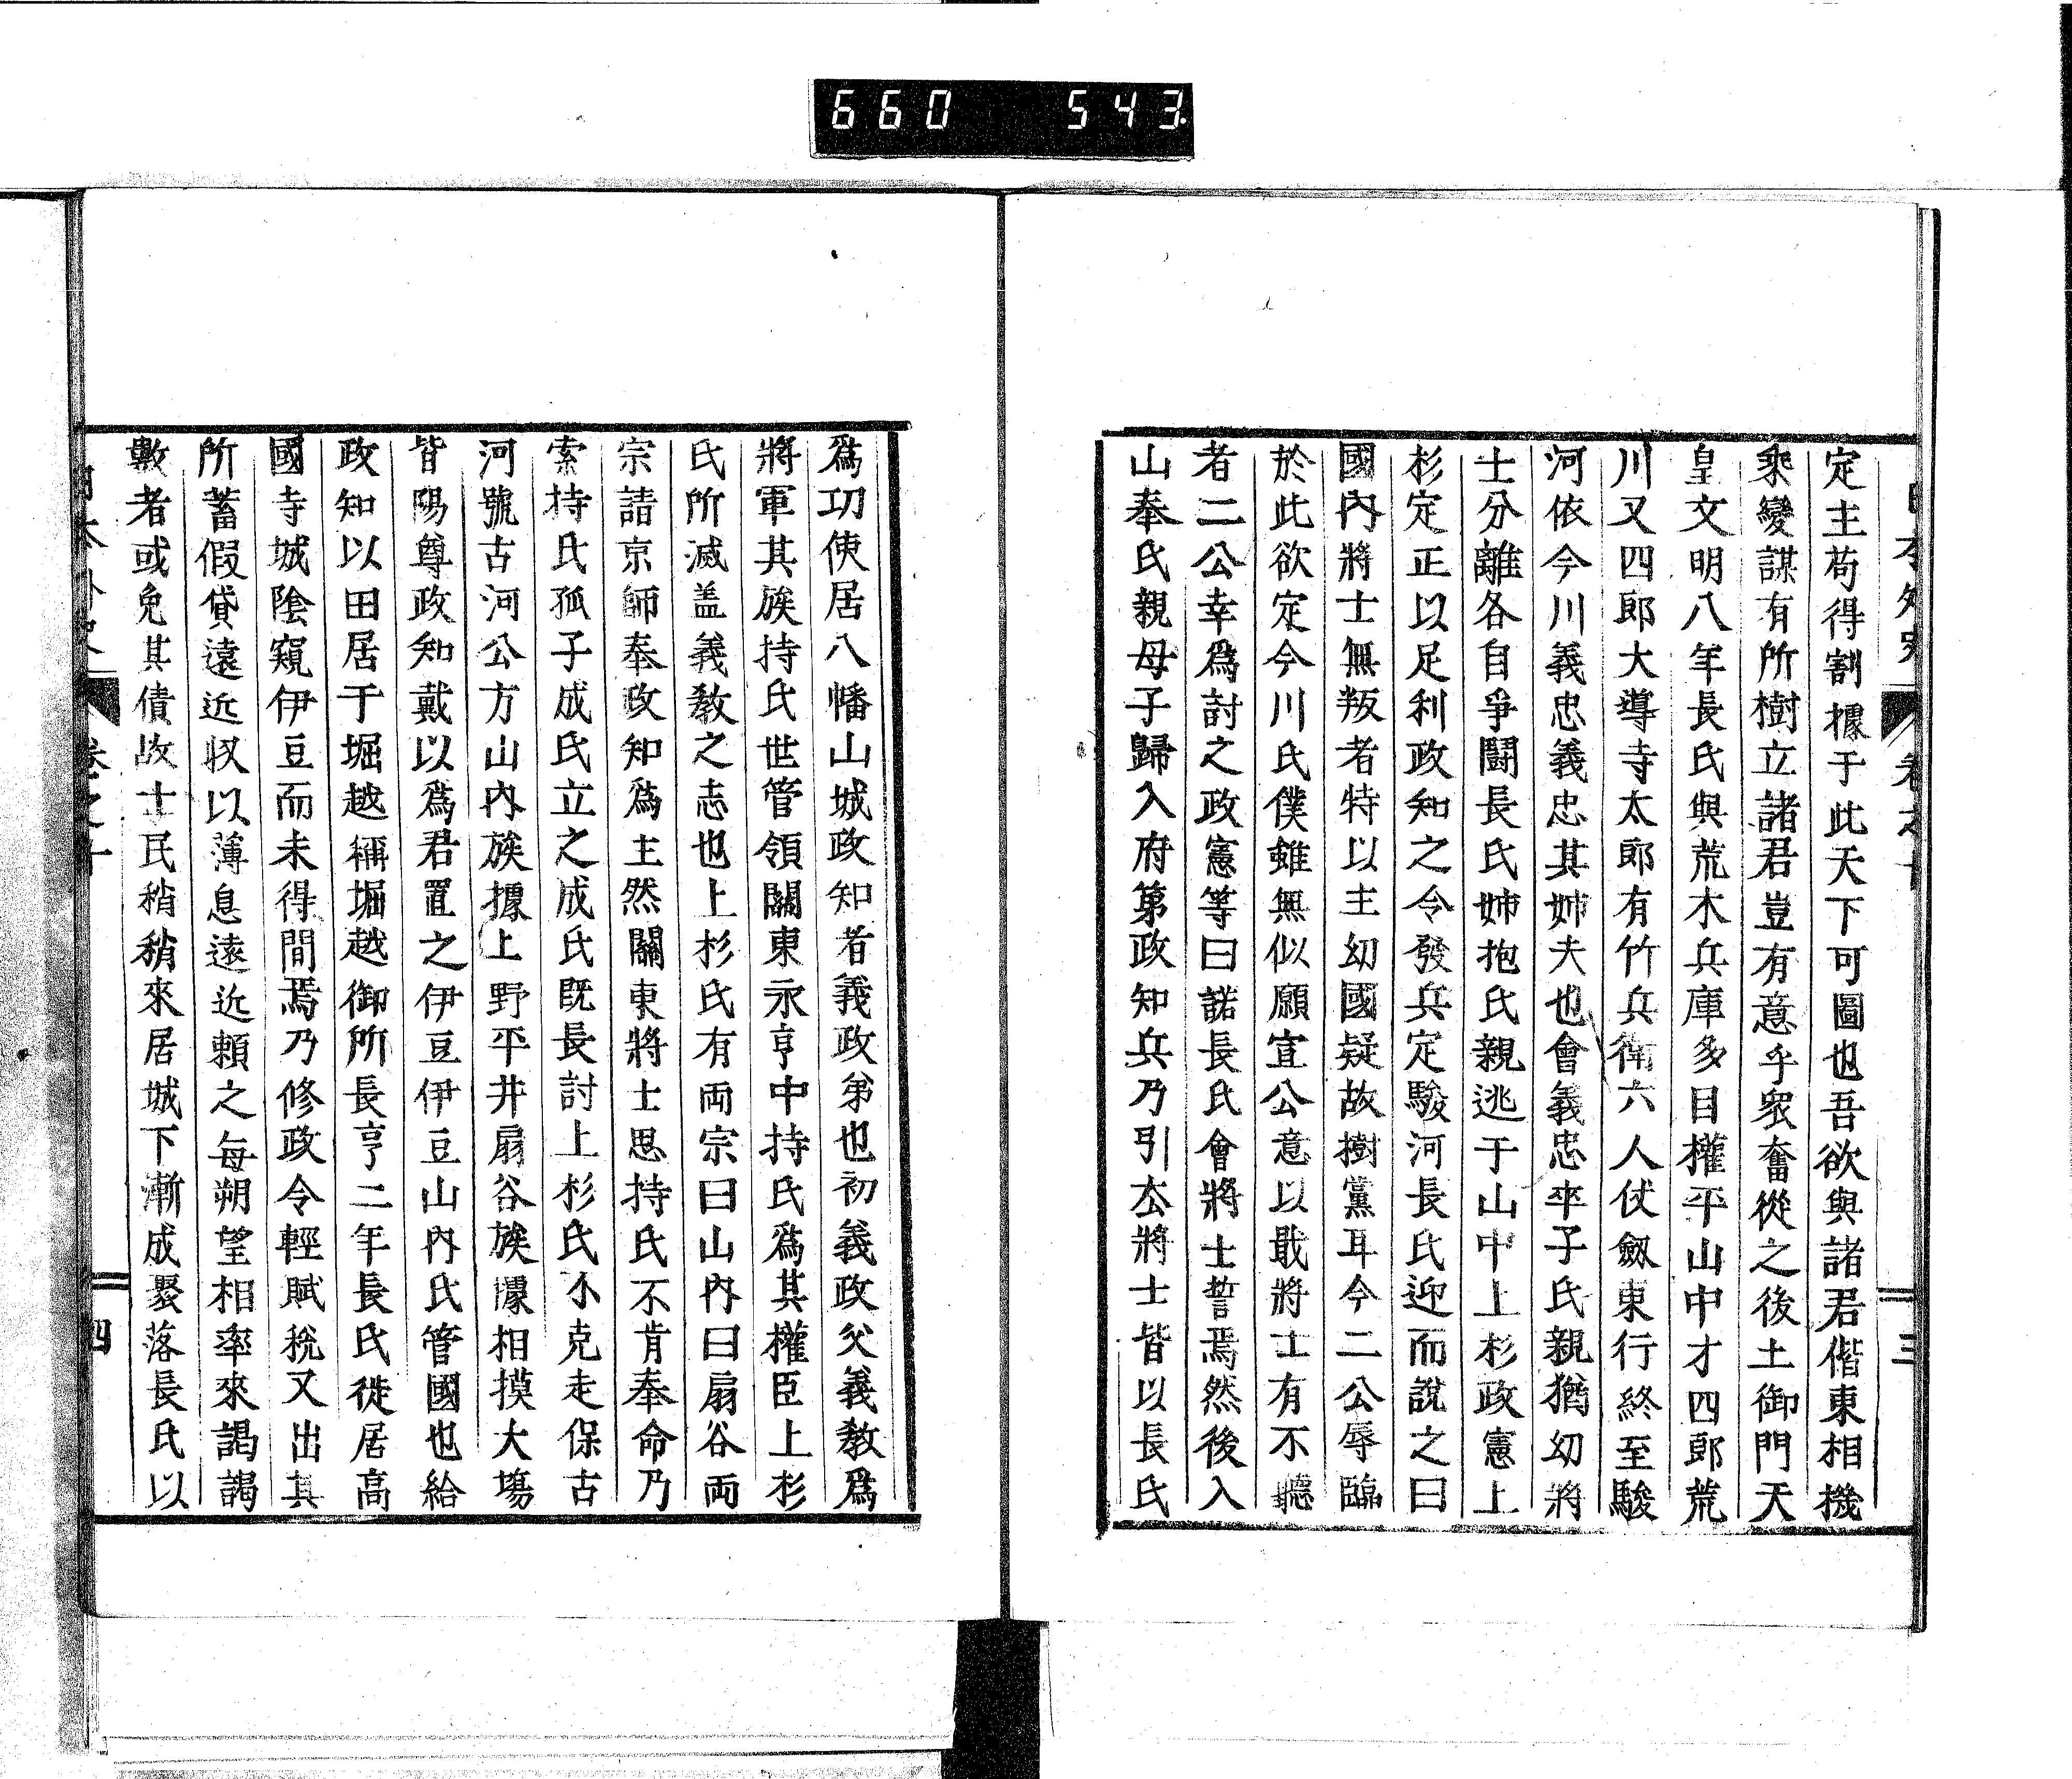 660 543.
日本外史 卷之十 三
定主苟得割據于此天下可圖也吾欲與諸君偕東相機
乘變謀有所樹立諸君豈有意乎衆奮從之後土御門天
皇文明八年長氏與荒木兵庫多目權平山中才四郎荒
川又四郎大導寺太郎有竹兵衛六人仗劔東行終至駿
河依今川義忠義忠其姉夫也會義忠卒子氏親猶幼將
士分離各自爭鬪長氏姉抱氏親逃于山中上杉政憲上
杉定正以足利政知之令發兵定駿河長氏迎而說之曰
國內將士無叛者特以主幼國疑故樹黨耳今二公辱臨
於此欲定今川氏僕雖無似願宣公意以戢將士有不聽
者二公幸爲討之政憲等曰諾長氏會將士誓焉然後入
山奉氏親母子歸入府第政知兵乃引厺將士皆以長氏
爲功使居八幡山城政知者義政弟也初義政父義敎爲
將軍其族持氏世管領關東永亨中持氏爲其權臣上杉
氏所滅盖義敎之志也上杉氏有両宗曰山內曰扇谷両
宗請京師奉政知爲主然關東將士思持氏不肯奉命乃
索持氏孤子成氏立之成氏既長討上杉氏不克走保古
河號古河公方山內族據上野平井扇谷族據相摸大塲
皆陽尊政知戴以爲君置之伊豆伊豆山內氏管國也給
政知以田居于堀越稱堀越御所長亨二年長氏徙居高
國寺城陰窺伊豆而未得間焉乃修政令輕賦稅又出其
所蓄假貸遠近收以薄息遠近頼之每朔望相率來謁謁
數者或免其債故士民稍稍來居城下漸成聚落長氏以
日本外史 卷之十 四